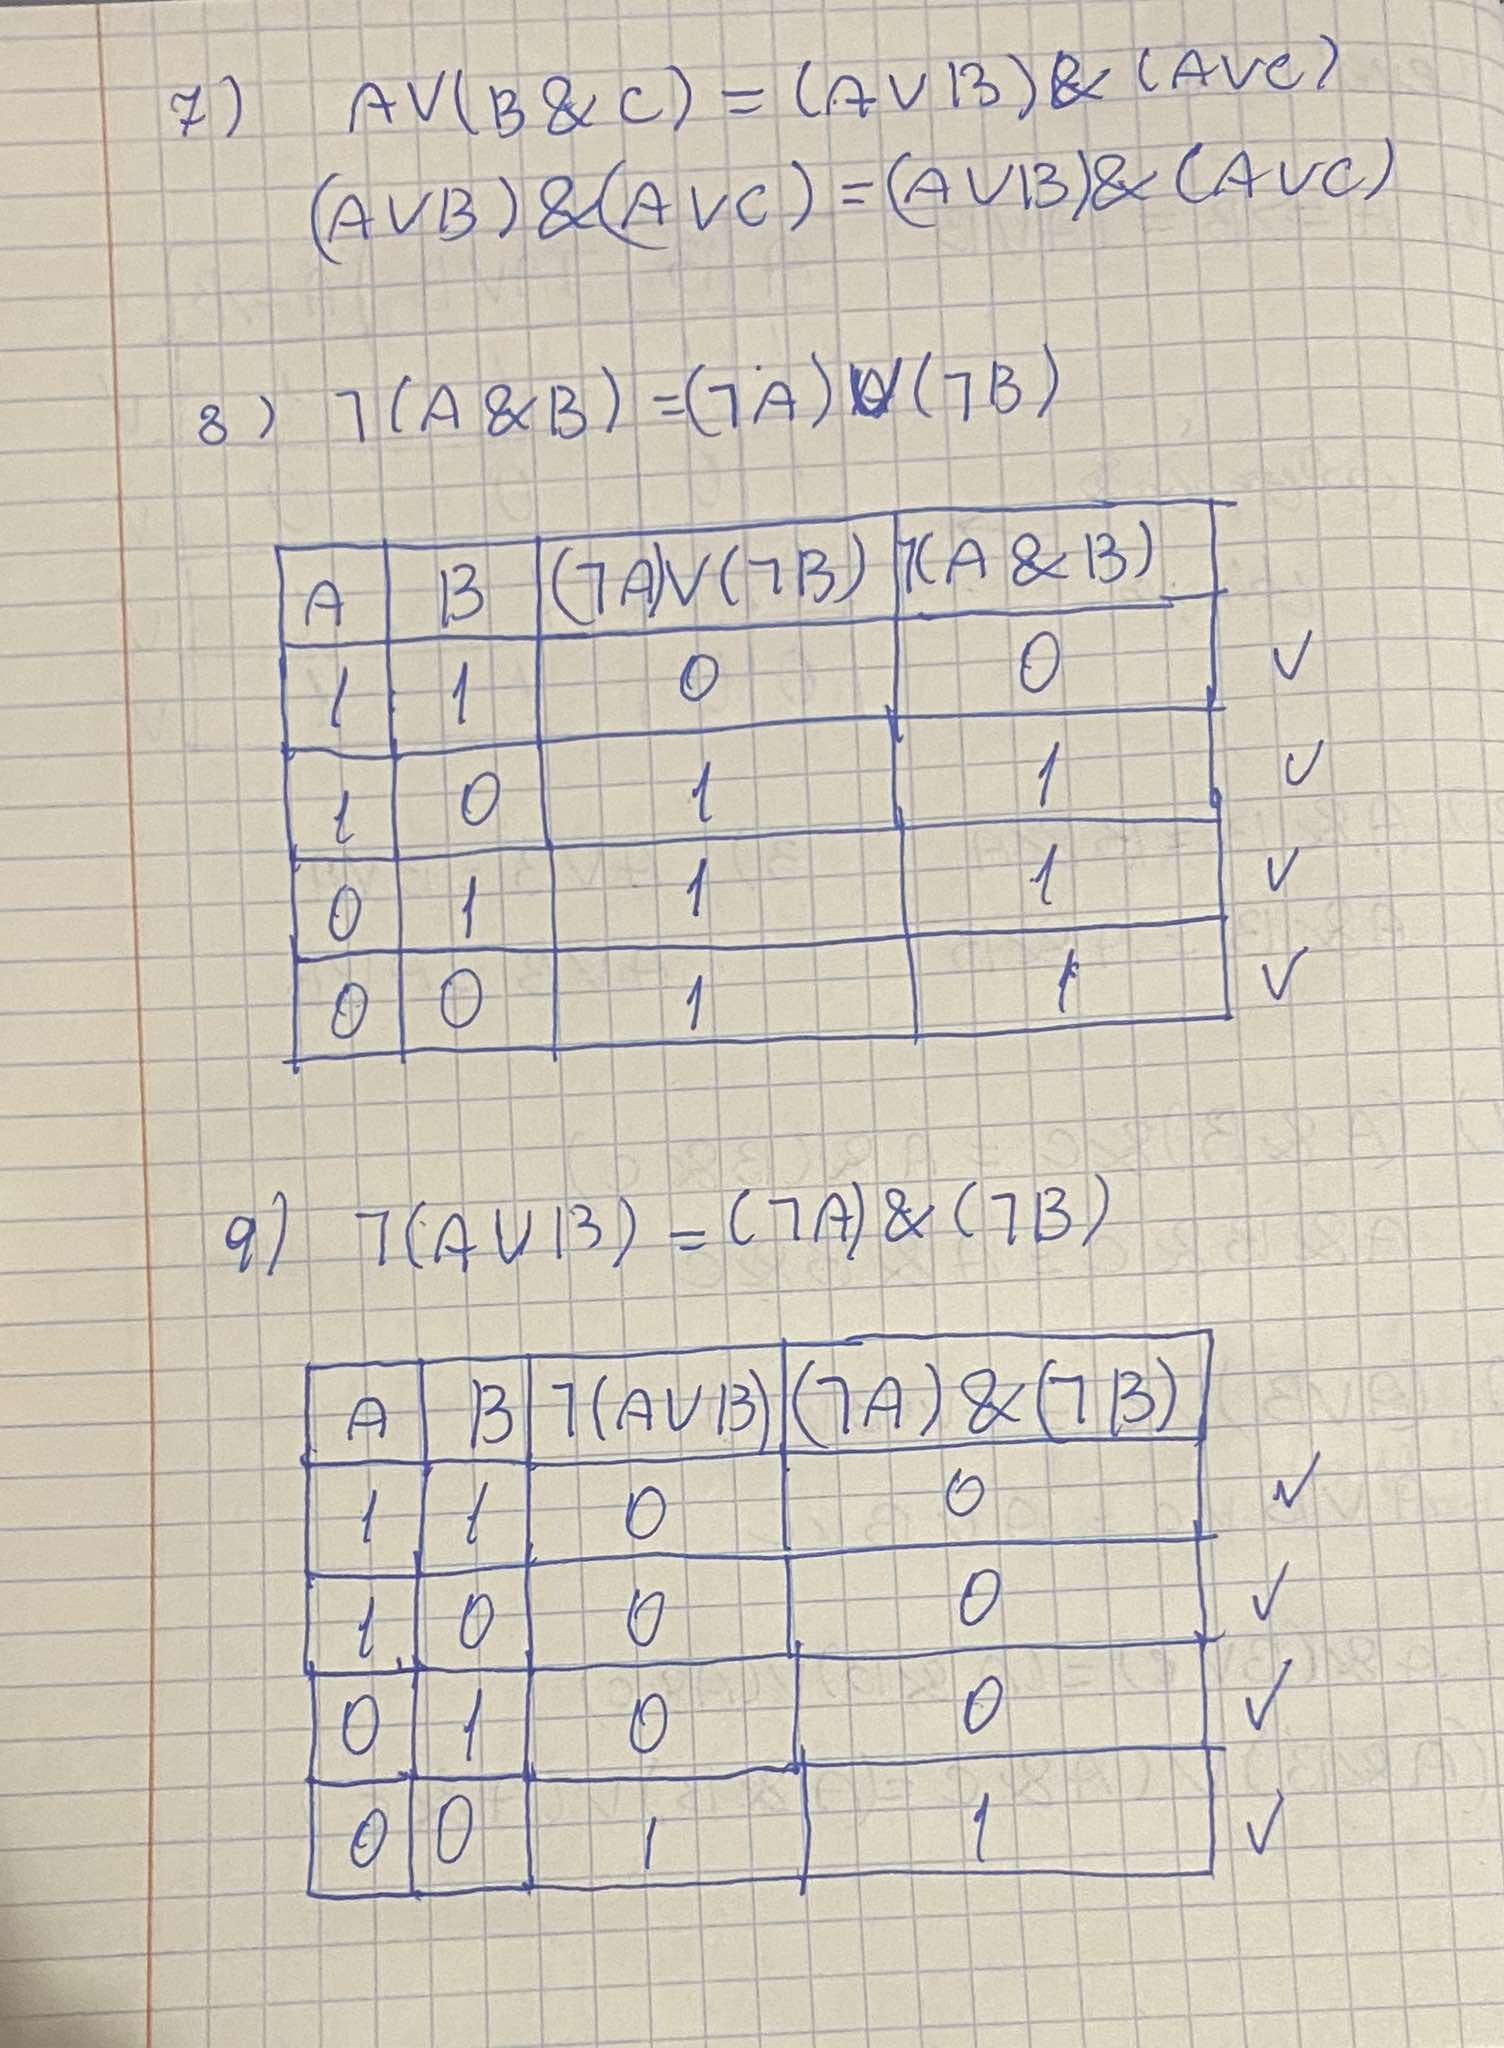 7) A∨(B & C) = (A∨B) & (A∨C)
(A∨B) & (A∨C) = (A∨B) & (A∨C)
8) ¬(A & B) = (¬A) ∨ (¬B)
A B (¬A)∨(¬B) ¬(A & B)
1 1 0 0 ✓
1 0 1 1 ✓
0 1 1 1 ✓
0 0 1 1 ✓
9) ¬(A∨B) = (¬A) & (¬B)
A B ¬(A∨B) (¬A) & (¬B)
1 1 0 0 ✓
1 0 0 0 ✓
0 1 0 0 ✓
0 0 1 1 ✓